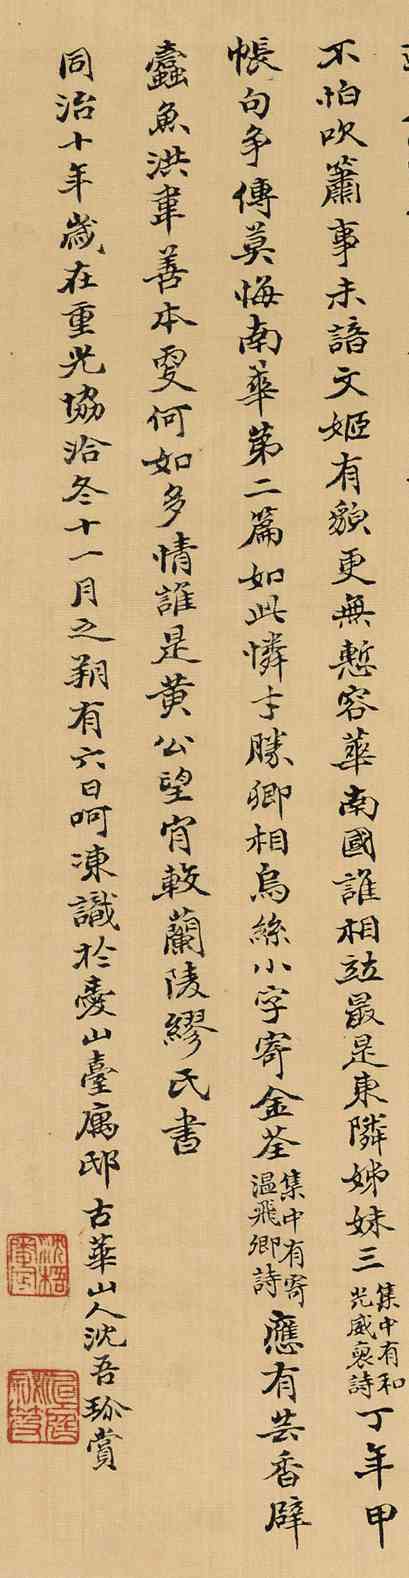 不怕吹簫事未諳文姬有貌更無慙容華南國誰相竝最是東隣姊妹三集中有和光威裒詩丁年甲
帳句爭傳莫悔南華第二篇如此憐才勝卿相烏絲小字寄金荃集中有寄溫飛卿詩應有芸香辟
蠹魚洪韋善本更何如多情誰是黃公望肎較蘭陵繆氏書
同治十年歲在重光協洽冬十一月之朔有六日呵凍識於愛山臺庽邸古華山人沈吾珍賞